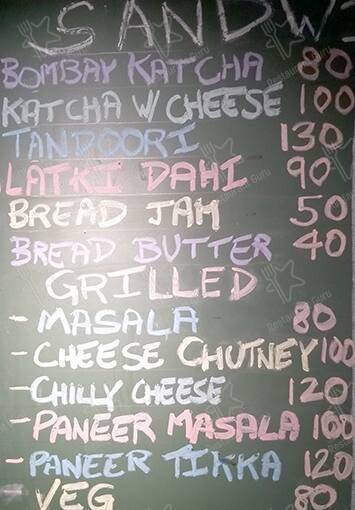 SANDW
BOMBAY KATCHA 80
KATCHA W CHEESE 100
TANDOORI 130
LATKI DAHI 90
BREAD JAM 50
BREAD BUTTER 40
GRILLED
- MASALA 80
- CHEESE CHUTNEY 100
- CHILLY CHEESE 120
- PANEER MASALA 100
- PANEER TIKKA 120
- VEG 80